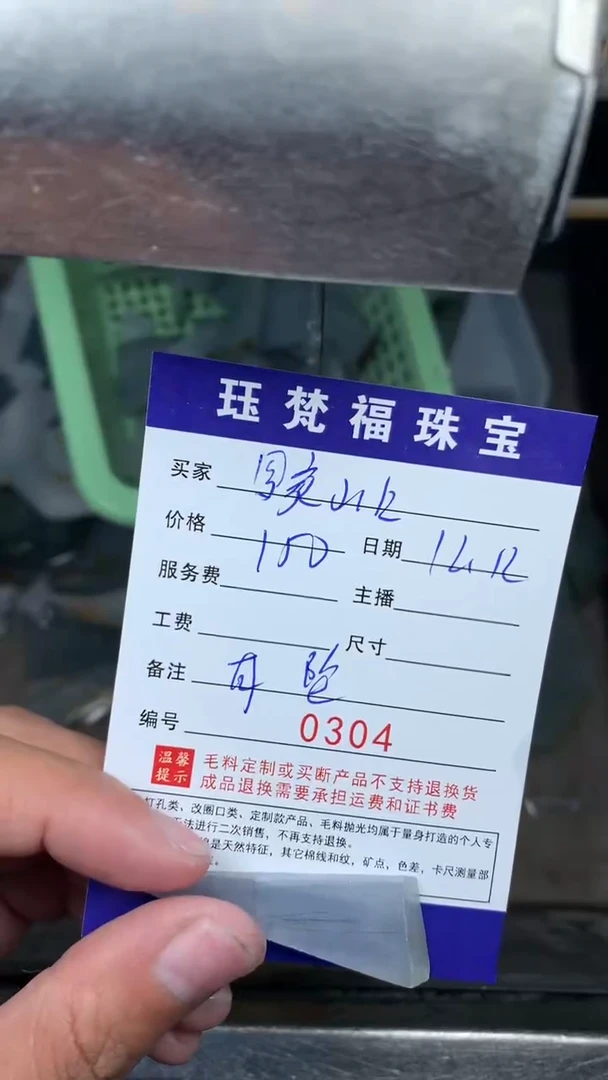 珏梵福珠宝
买家
价格 100 日期
服务费 主播
工费 尺寸
备注 耳坠
编号 0304
温馨提示 毛料定制或买断产品不支持退换货
成品退换需要承担运费和证书费
打孔类、改圈口类、定制款产品、毛料抛光均属于量身打造的个人专
法进行二次销售，不再支持退换。
是天然特征，其它棉线和纹，矿点，色差，卡尺测量部